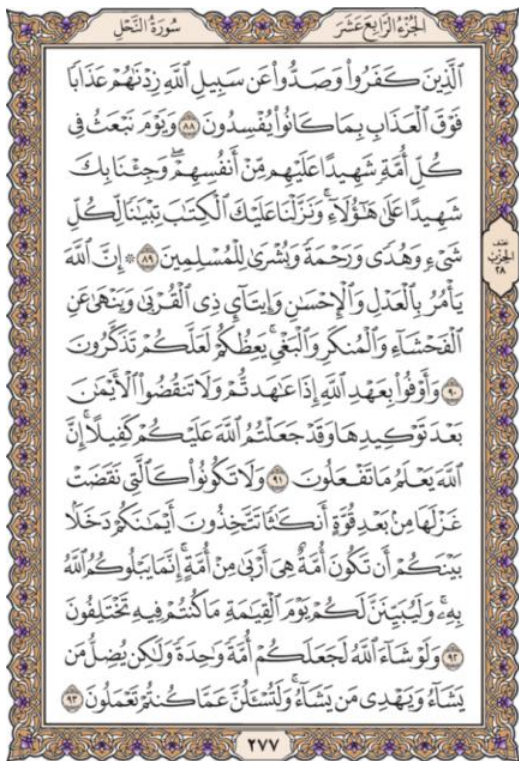 الجُزْءُ الرَّابِعَ عَشَرَ
سُورَةُ النَّحْلِ
ٱلَّذِينَ كَفَرُواْ وَصَدُّواْ عَن سَبِيلِ ٱللَّهِ زِدۡنَٰهُمۡ عَذَابٗا
فَوۡقَ ٱلۡعَذَابِ بِمَا كَانُواْ يُفۡسِدُونَ ٨٨ وَيَوۡمَ نَبۡعَثُ فِي
كُلِّ أُمَّةٖ شَهِيدًا عَلَيۡهِم مِّنۡ أَنفُسِهِمۡۖ وَجِئۡنَا بِكَ
شَهِيدًا عَلَىٰ هَٰٓؤُلَآءِۚ وَنَزَّلۡنَا عَلَيۡكَ ٱلۡكِتَٰبَ تِبۡيَٰنٗا لِّكُلِّ
شَيۡءٖ وَهُدٗى وَرَحۡمَةٗ وَبُشۡرَىٰ لِلۡمُسۡلِمِينَ ٨٩ ۞ إِنَّ ٱللَّهَ
يَأۡمُرُ بِٱلۡعَدۡلِ وَٱلۡإِحۡسَٰنِ وَإِيتَآيِٕ ذِي ٱلۡقُرۡبَىٰ وَيَنۡهَىٰ عَنِ
ٱلۡفَحۡشَآءِ وَٱلۡمُنكَرِ وَٱلۡبَغۡيِۚ يَعِظُكُمۡ لَعَلَّكُمۡ تَذَكَّرُونَ
٩٠ وَأَوۡفُواْ بِعَهۡدِ ٱللَّهِ إِذَا عَٰهَدتُّمۡ وَلَا تَنقُضُواْ ٱلۡأَيۡمَٰنَ
بَعۡدَ تَوۡكِيدِهَا وَقَدۡ جَعَلۡتُمُ ٱللَّهَ عَلَيۡكُمۡ كَفِيلًاۚ إِنَّ
ٱللَّهَ يَعۡلَمُ مَا تَفۡعَلُونَ ٩١ وَلَا تَكُونُواْ كَٱلَّتِي نَقَضَتۡ
غَزۡلَهَا مِنۢ بَعۡدِ قُوَّةٍ أَنكَٰثٗا تَتَّخِذُونَ أَيۡمَٰنَكُمۡ دَخَلَۢا
بَيۡنَكُمۡ أَن تَكُونَ أُمَّةٌ هِيَ أَرۡبَىٰ مِنۡ أُمَّةٍۚ إِنَّمَا يَبۡلُوكُمُ ٱللَّهُ
بِهِۦۚ وَلَيُبَيِّنَنَّ لَكُمۡ يَوۡمَ ٱلۡقِيَٰمَةِ مَا كُنتُمۡ فِيهِ تَخۡتَلِفُونَ
٩٢ وَلَوۡ شَآءَ ٱللَّهُ لَجَعَلَكُمۡ أُمَّةٗ وَٰحِدَةٗ وَلَٰكِن يُضِلُّ مَن
يَشَآءُ وَيَهۡدِي مَن يَشَآءُۚ وَلَتُسۡـَٔلُنَّ عَمَّا كُنتُمۡ تَعۡمَلُونَ ٩٣
نصف
الحزب
٢٨
٢٧٧